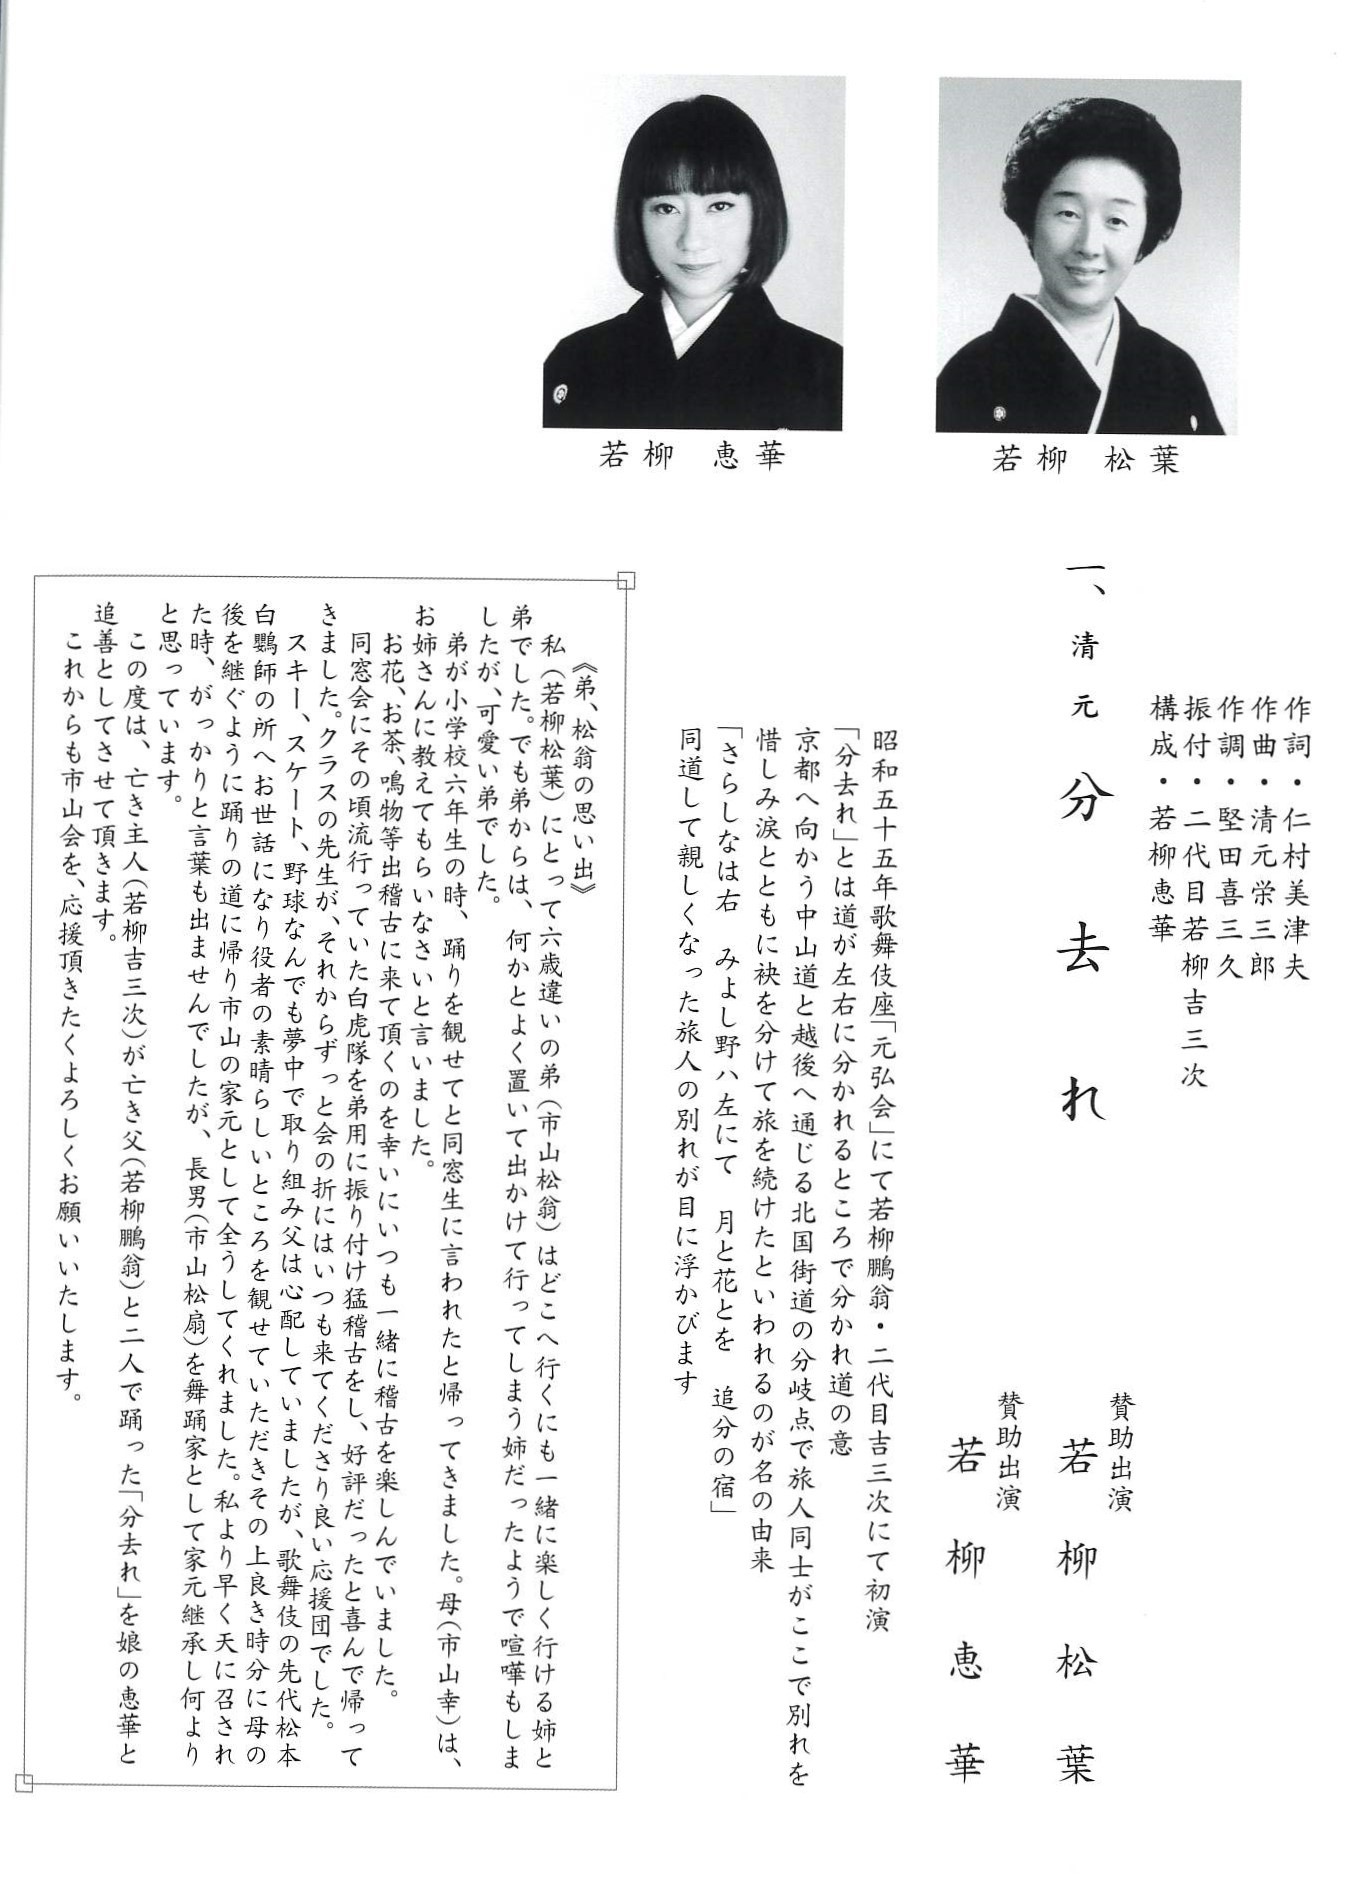 若柳 松葉
若柳 恵華
作詞・仁村美津夫
作曲・清元栄三郎
作調・堅田喜三久
振付・二代目若柳吉三次
構成・若柳恵華
一、清元 分去れ
賛助出演
若柳松葉
賛助出演
若柳恵華
昭和五十五年歌舞伎座「元弘会」にて若柳鵬翁・二代目吉三次にて初演
「分去れ」とは道が左右に分かれるところで分かれ道の意
京都へ向かう中山道と越後へ通じる北国街道の分岐点で旅人同士がここで別れを
惜しみ涙とともに袂を分けて旅を続けたといわれるのが名の由来
「さらしなは右 みよし野ハ左にて 月と花とを 追分の宿」
同道して親しくなった旅人の別れが目に浮かびます
《弟、松翁の思い出》
私（若柳松葉）にとって六歳違いの弟（市山松翁）はどこへ行くにも一緒に楽しく行ける姉と
弟でした。でも弟からは、何かとよく置いて出かけて行ってしまう姉だったようで喧嘩もしま
したが、可愛い弟でした。
弟が小学校六年生の時、踊りを観せてと同窓生に言われたと帰ってきました。母（市山幸）は、
お姉さんに教えてもらいなさいと言いました。
お花、お茶、鳴物等出稽古に来て頂くのを幸いにいつも一緒に稽古を楽しんでいました。
同窓会にその頃流行っていた白虎隊を弟用に振り付け猛稽古をし、好評だったと喜んで帰って
きました。クラスの先生が、それからずっと会の折にはいつも来てくださり良い応援団でした。
スキー、スケート、野球なんでも夢中で取り組み父は心配していましたが、歌舞伎の先代松本
白鸚師の所へお世話になり役者の素晴らしいところを観せていただきその上良き時分に母の
後を継ぐように踊りの道に帰り市山の家元として全うしてくれました。私より早く天に召され
た時、がっかりと言葉も出ませんでしたが、長男（市山松扇）を舞踊家として家元継承し何より
と思っています。
この度は、亡き主人（若柳吉三次）が亡き父（若柳鵬翁）と二人で踊った「分去れ」を娘の恵華と
追善としてさせて頂きます。
これからも市山会を、応援頂きたくよろしくお願いいたします。